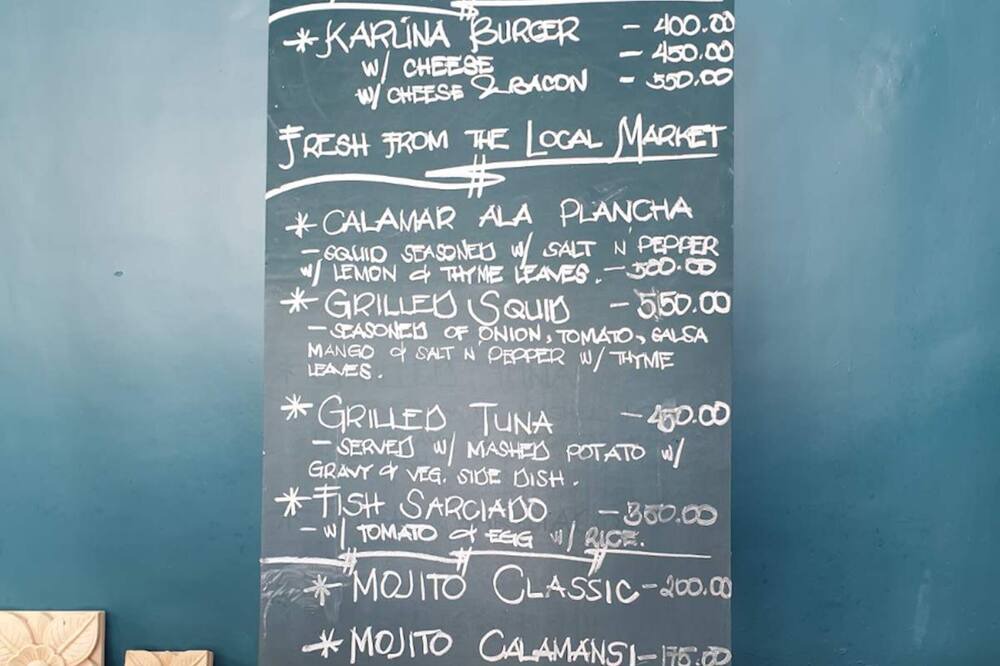 * KARUNA BURGER - 400.00
W/ CHEESE - 450.00
W/ CHEESE & BACON - 550.00
FRESH FROM THE LOCAL MARKET
* CALAMAR ALA PLANCHA
- SQUID SEASONED W/ SALT N PEPPER
W/ LEMON & THYME LEAVES. - 500.00
* GRILLED SQUID - 550.00
- SEASONED OF ONION, TOMATO, SALSA
MANGO & SALT N PEPPER W/ THYME
LEAVES.
* GRILLED TUNA - 450.00
- SERVED W/ MASHED POTATO W/
GRAVY & VEG. SIDE DISH.
* FISH SARCIADO - 350.00
- W/ TOMATO & EGG W/ RICE.
* MOJITO CLASSIC - 200.00
* MOJITO CALAMANSI - 175.00